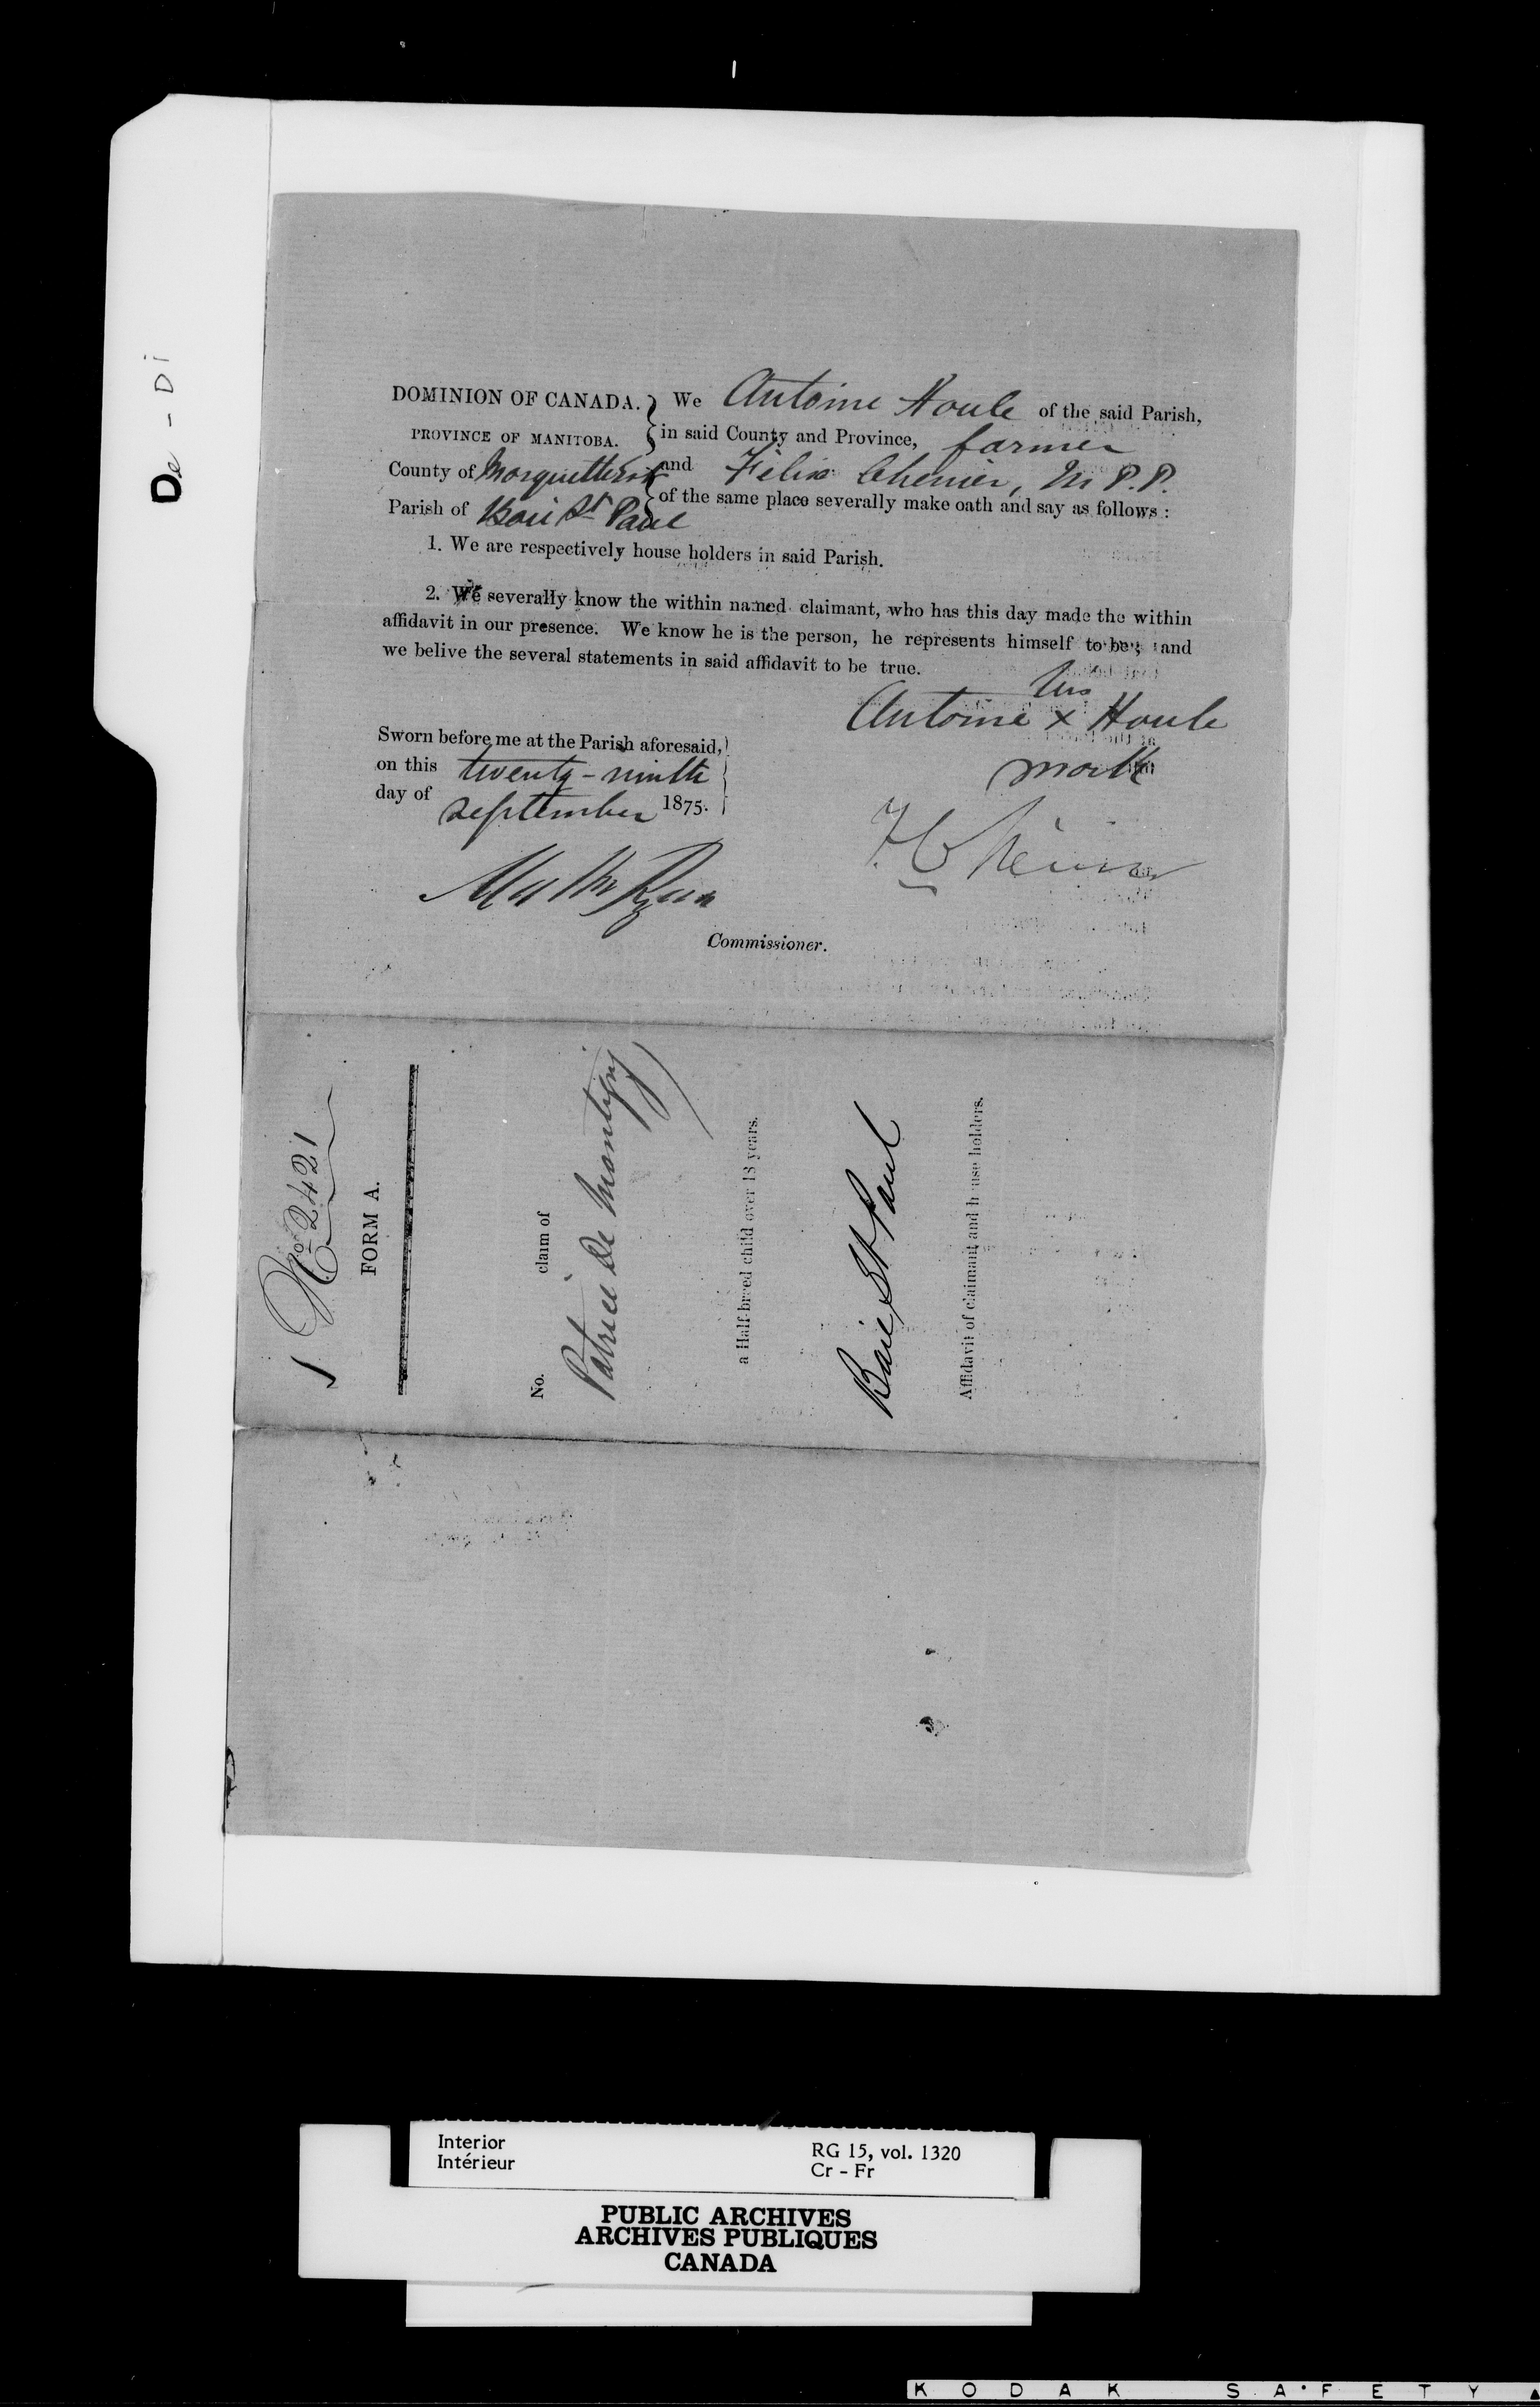 De - Di
DOMINION OF CANADA. } We Antoine Houle of the said Parish,
PROVINCE OF MANITOBA. in said County and Province, farmer
County of Marquette East and Felix Chenier, M.P.P.
Parish of Baie St Paul of the same place severally make oath and say as follows :
1. We are respectively house holders in said Parish.
2. We severally know the within named claimant, who has this day made the within
affidavit in our presence. We know he is the person, he represents himself to be; and
we belive the several statements in said affidavit to be true.
his
Antoine x Houle
mark
Sworn before me at the Parish aforesaid,
on this twenty-ninth
day of september 1875.
F. Chenier
Matth Ryan
Commissioner.
No 2421
FORM A.
No. claim of
Patrice De Montigny
a Half-breed child over 18 years.
Baie St Paul
Affidavit of claimant and house holders.
Interior
Intérieur
RG 15, vol. 1320
Cr - Fr
PUBLIC ARCHIVES
ARCHIVES PUBLIQUES
CANADA
KODAK SAFETY